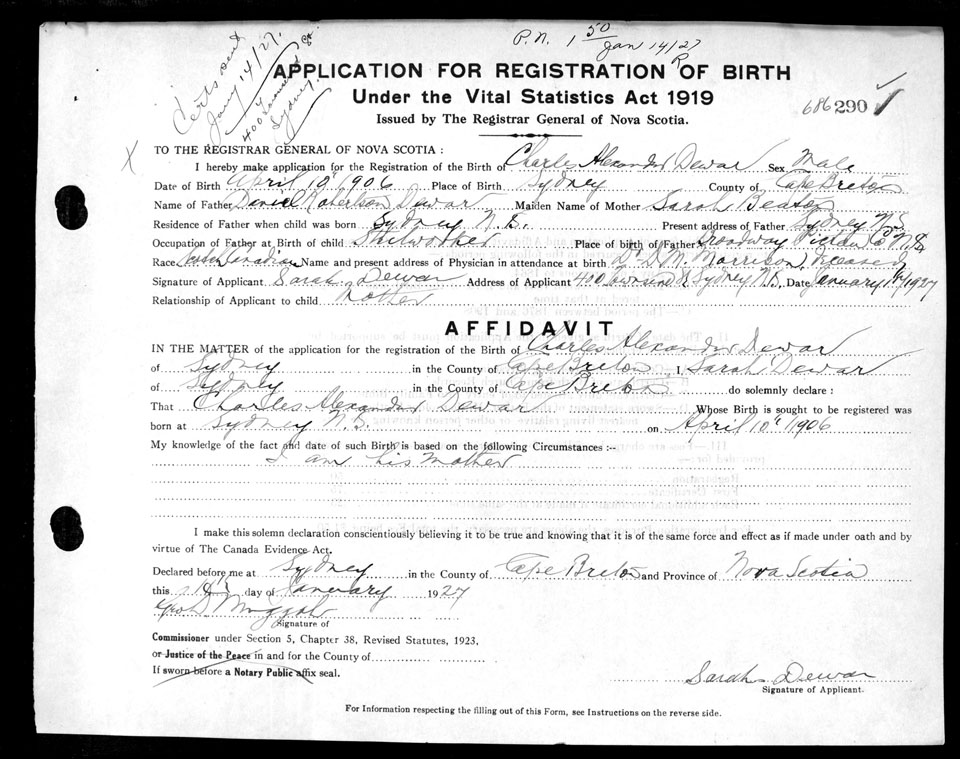 P.N. 1 50 Jan 14/27
Certs sent
Jany 14/27.
400 Townsend St
Sydney.
APPLICATION FOR REGISTRATION OF BIRTH
R
Under the Vital Statistics Act 1919
686 290
Issued by The Registrar General of Nova Scotia.
X
TO THE REGISTRAR GENERAL OF NOVA SCOTIA:
I hereby make application for the Registration of the Birth of Charles Alexander Dewar Sex Male
Date of Birth April 10th 1906 Place of Birth Sydney County of Cape Breton
Name of Father Daniel Robertson Dewar Maiden Name of Mother Sarah Beaton
Residence of Father when child was born Sydney N.S. Present address of Father Sydney N.S.
Occupation of Father at Birth of child Steelworker Place of birth of Father Broadway Pictou Co N.S.
Race Scotch Canadian Name and present address of Physician in attendance at birth Dr D.M. Morrison, Deceased
Signature of Applicant Sarah Dewar Address of Applicant 400 Townsend St Sydney N.S. Date January 1927
Relationship of Applicant to child Mother
AFFIDAVIT
IN THE MATTER of the application for the registration of the Birth of Charles Alexander Dewar
of Sydney in the County of Cape Breton I, Sarah Dewar
of Sydney in the County of Cape Breton do solemnly declare:
That Charles Alexander Dewar Whose Birth is sought to be registered was
born at Sydney N.S. on April 10th 1906
My knowledge of the fact and date of such Birth is based on the following Circumstances :--
I am his mother
I make this solemn declaration conscientiously believing it to be true and knowing that it is of the same force and effect as if made under oath and by
virtue of The Canada Evidence Act.
Declared before me at Sydney in the County of Cape Breton and Province of Nova Scotia
this day of January 1927
Geo D
Signature of
Commissioner under Section 5, Chapter 38, Revised Statutes, 1923,
or Justice of the Peace in and for the County of
If sworn before a Notary Public affix seal.
Sarah Dewar
Signature of Applicant.
For Information respecting the filling out of this Form, see Instructions on the reverse side.